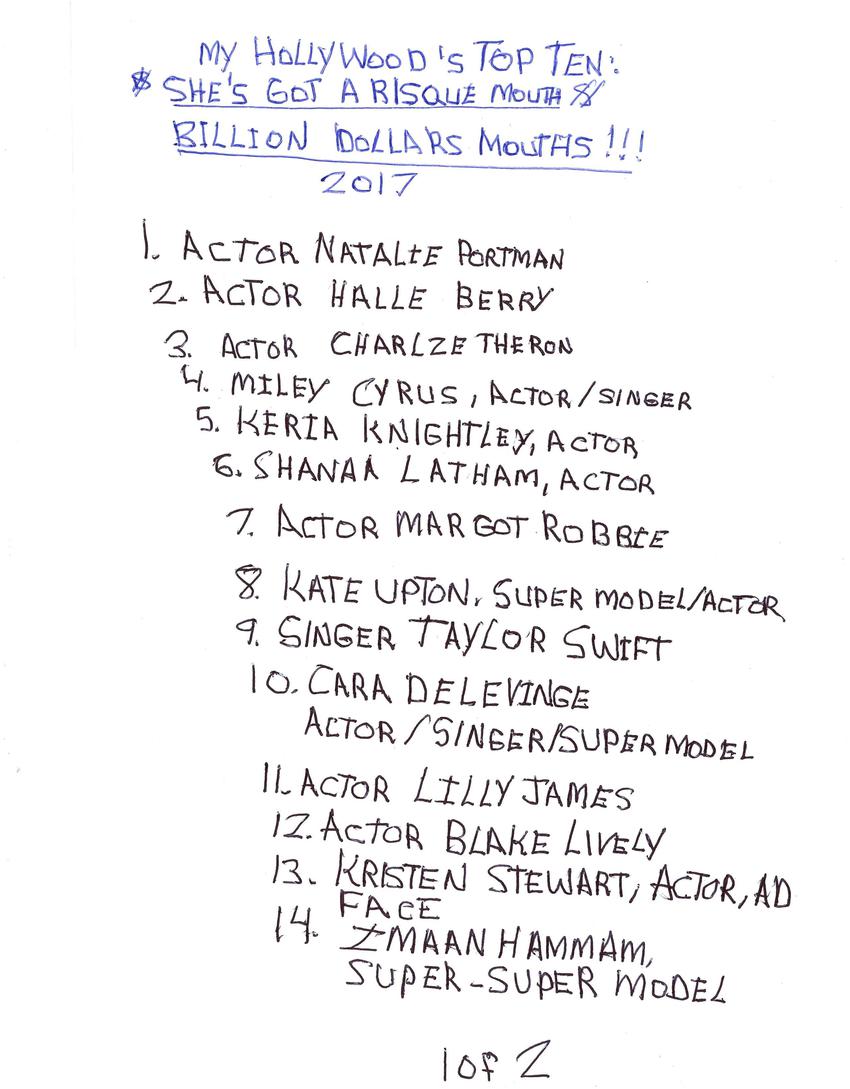 MY HOLLYWOOD'S TOP TEN:
$ SHE'S GOT A RISQUÉ MOUTH $
BILLION DOLLARS MOUTHS!!!
2017
1. ACTOR NATALIE PORTMAN
2. ACTOR HALLE BERRY
3. ACTOR CHARLZE THERON
4. MILEY CYRUS, ACTOR/SINGER
5. KERIA KNIGHTLEY, ACTOR
6. SHANAA LATHAM, ACTOR
7. ACTOR MARGOT ROBBIE
8. KATE UPTON, SUPER MODEL/ACTOR
9. SINGER TAYLOR SWIFT
10. CARA DELEVINGE
ACTOR/SINGER/SUPER MODEL
11. ACTOR LILLY JAMES
12. ACTOR BLAKE LIVELY
13. KRISTEN STEWART, ACTOR, AD
FACE
14. IMAAN HAMMAM,
SUPER-SUPER MODEL
1 of 2